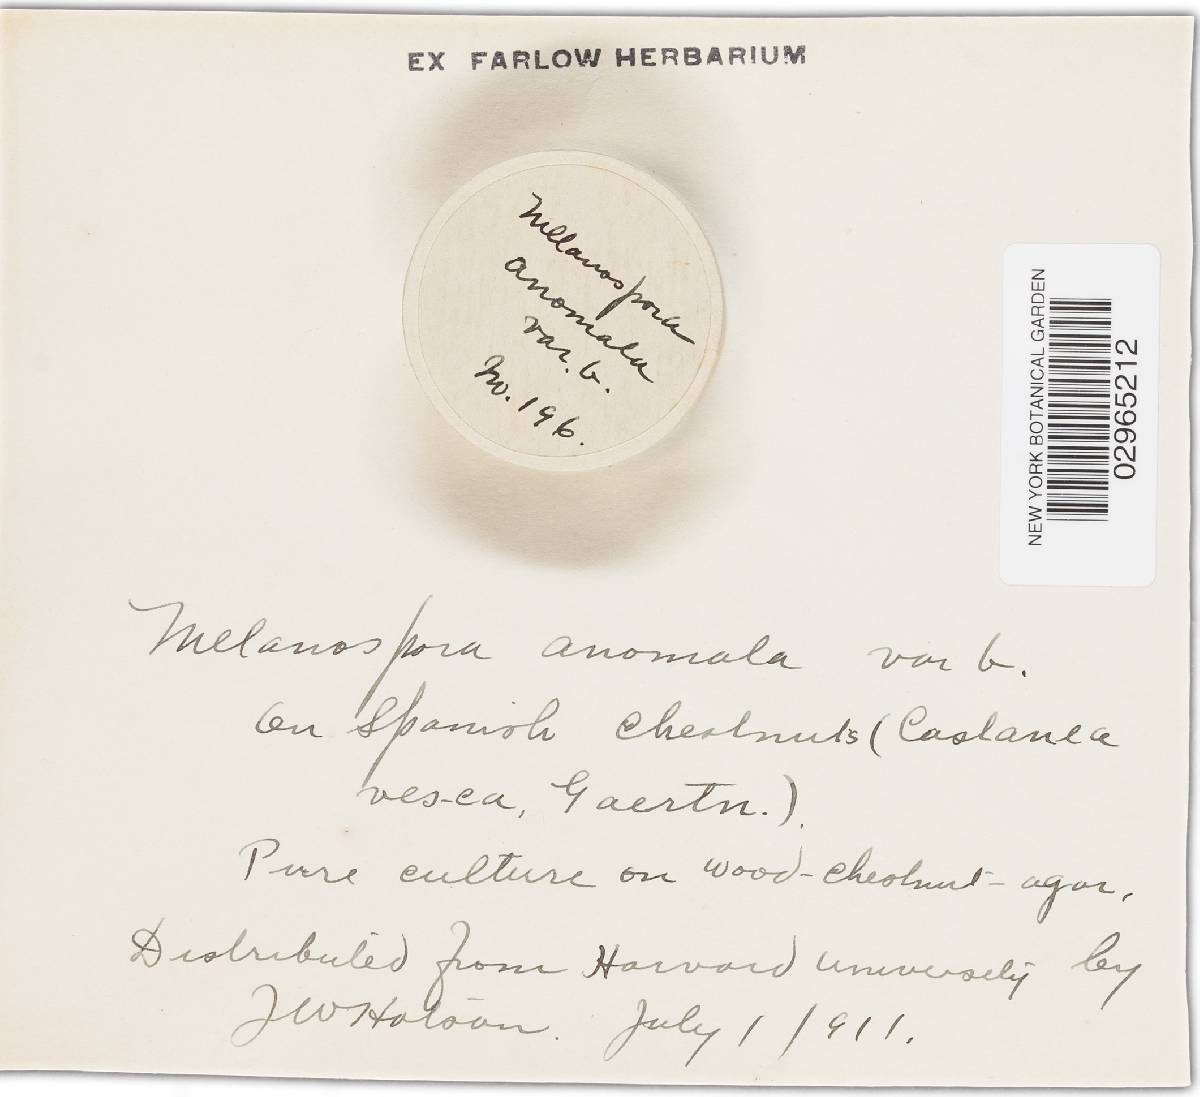 EX FARLOW HERBARIUM
Melanospora
anomala
var. b.
No. 196.
NEW YORK BOTANICAL GARDEN
02965212
Melanospora anomala var b.
On Spanish chestnuts (Castanea
vesca, Gaertn.).
Pure culture on wood-chestnut-agar.
Distributed from Harvard University by
J W Hotson. July 1 1911.